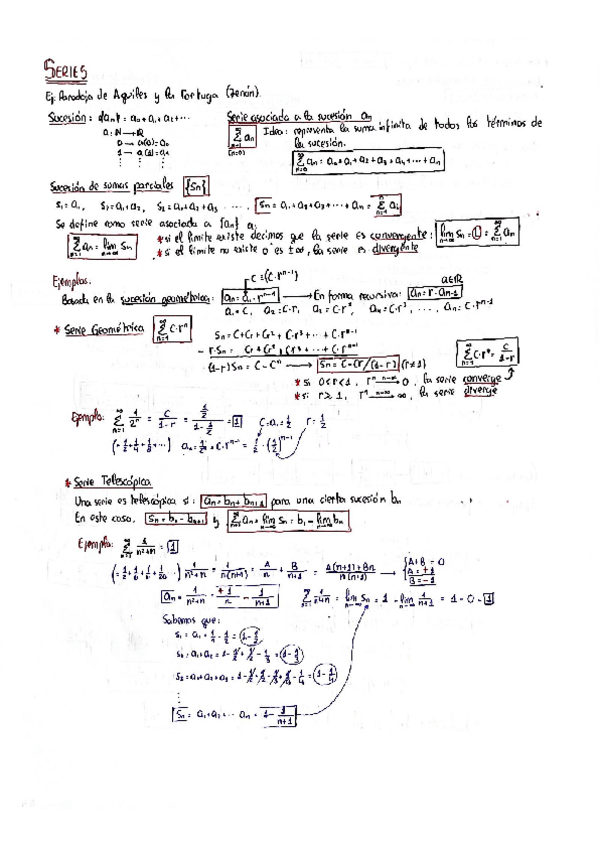 SERIES
Ej: Paradoja de Aquiles y la Tortuga (Zenón).
Sucesión: {an} = a0 + a1 + a2 + ...
a: N → R
0 → a(0) = a0
1 → a(1) = a1
Serie asociada a la sucesión an
∑ an (n=0) ∞ Idea: representa la suma infinita de todos los términos de
la sucesión.
∑ an = a0 + a1 + a2 + a3 + a4 + ... + an
Sucesión de sumas parciales {Sn}
S1 = a1, S2 = a1 + a2, S3 = a1 + a2 + a3 ..... Sn = a1 + a2 + a3 + ... + an = ∑ ai
Se define como serie asociada a {an} a:
∑ an = lim Sn
* si el límite existe decimos que la serie es convergente: lim Sn = L = ∑ an
* si el límite no existe o es ±∞, la serie es divergente
Ejemplos.
C = {C·r^n-1}
Basada en la sucesión geométrica: an = a1·r^n-1 → En forma recursiva: an = r·an-1 a∈R
a1 = C, a2 = C·r, a3 = C·r², a4 = C·r³, ..., an = C·r^n-1
* Serie Geométrica ∑ C·r^n
Sn = C + Cr + Cr² + C·r³ + ... + C·r^n-1
- r·Sn = Cr + Cr² + Cr³ + ... + C·r^n-1
(1-r)Sn = C - C^n → Sn = C-Cr/(1-r) (r≠1)
∑ C·r^n = C/1-r
* si 0<r<1, r^n → 0, la serie converge
* si r≥1, r^n → ∞, la serie diverge
Ejemplo: ∑ 1/2^n = C/1-r = 1/2 / 1-1/2 = 1 C=a1=1/2 r=1/2
(= 1/2 + 1/4 + 1/8 + ...) an = 1/2^n = C·r^n-1 = 1/2 · (1/2)^n-1
* Serie Telescópica
Una serie es telescópica si: an = bn + bn+1 para una cierta sucesión bn
En este caso, Sn = b1 - bn+1 y ∑ an = lim Sn = b1 - lim bn
Ejemplo: ∑ 1/n²+n = 1
(= 1/2 + 1/6 + 1/12 + 1/20 ...) 1/n²+n = 1/n(n+1) = A/n + B/n+1 = A(n+1)+Bn/n(n+1) → {A+B = 0
A = +1
B = -1
an = 1/n²+n = +1/n - 1/n+1 ∑ 1/n²+n = lim Sn = 1 - lim 1/n+1 = 1 - 0 = 1
Sabemos que:
S1 = a1 = 1/1 - 1/2 = 1 - 1/2
S2 = a1 + a2 = 1 - 1/2 + 1/2 - 1/3 = 1 - 1/3
S3 = a1 + a2 + a3 = 1 - 1/2 + 1/2 - 1/3 + 1/3 - 1/4 = 1 - 1/4
Sn = a1 + a2 + ... an = 1 - 1/n+1